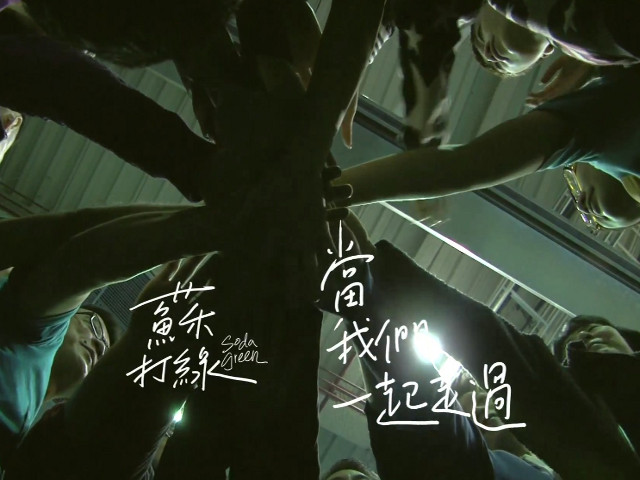 蘇
打綠
soda
green
當
我們
一起走過